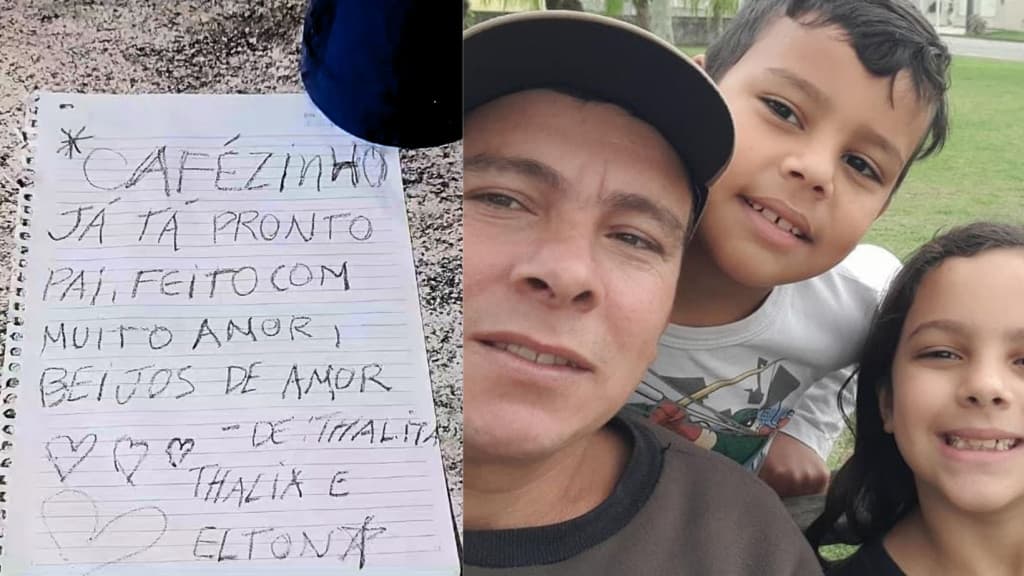 *CAFÉZINHO
JÁ TÁ PRONTO
PAI, FEITO COM
MUITO AMOR,
BEIJOS DE AMOR
- DE THALITA
THALIA E
ELTON